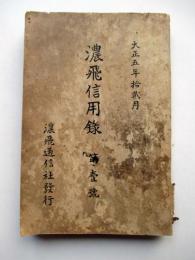 大正五年拾貳月
濃飛信用錄
第壹號
濃飛通信社發行